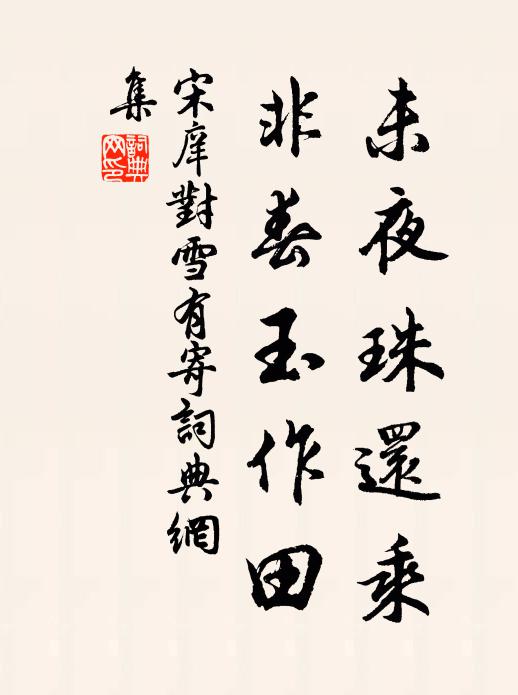 未夜珠還乘
非春玉作田
宋庠對雪有寄詞典網
集
詞典網印